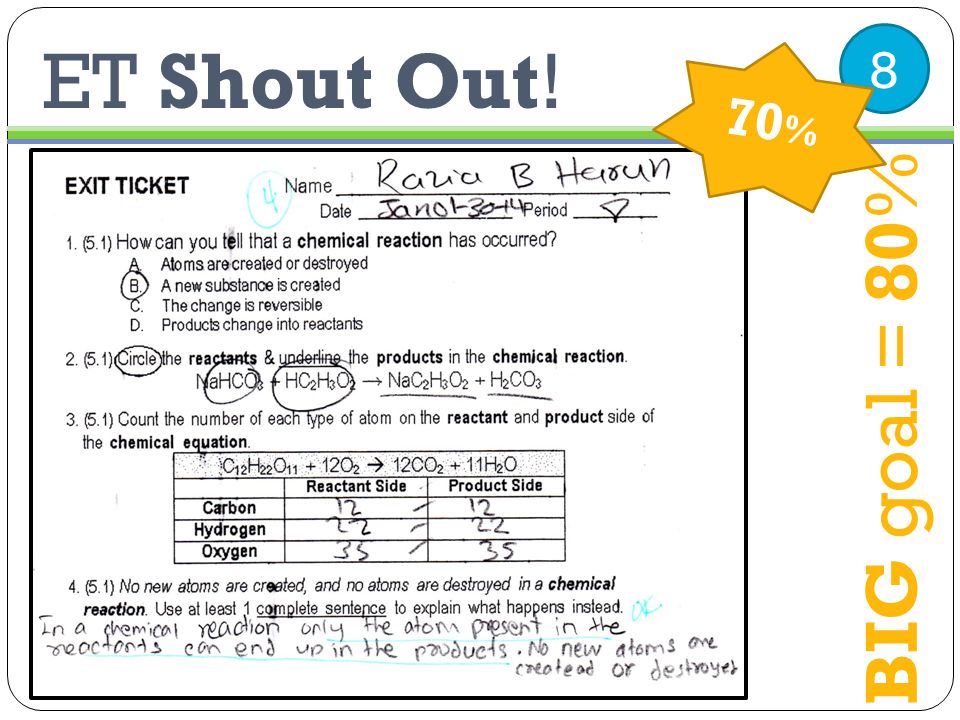 ET Shout Out!
8
70%
BIG goal = 80%
EXIT TICKET
4
Name Razia B Harun
Date Jan 01-30-14 Period 8
1. (5.1) How can you tell that a chemical reaction has occurred?
A. Atoms are created or destroyed
B. A new substance is created
C. The change is reversible
D. Products change into reactants
2. (5.1) Circle the reactants & underline the products in the chemical reaction.
NaHCO₃ + HC₂H₃O₂ → NaC₂H₃O₂ + H₂CO₃
3. (5.1) Count the number of each type of atom on the reactant and product side of
the chemical equation.
C₁₂H₂₂O₁₁ + 12O₂ → 12CO₂ + 11H₂O
Reactant Side Product Side
Carbon 12 – 12
Hydrogen 22 – 22
Oxygen 35 – 35
4. (5.1) No new atoms are created, and no atoms are destroyed in a chemical
reaction. Use at least 1 complete sentence to explain what happens instead. OK
In a chemical reaction only the atom present in the
reactants can end up in the products. No new atoms are
createad or destroyed